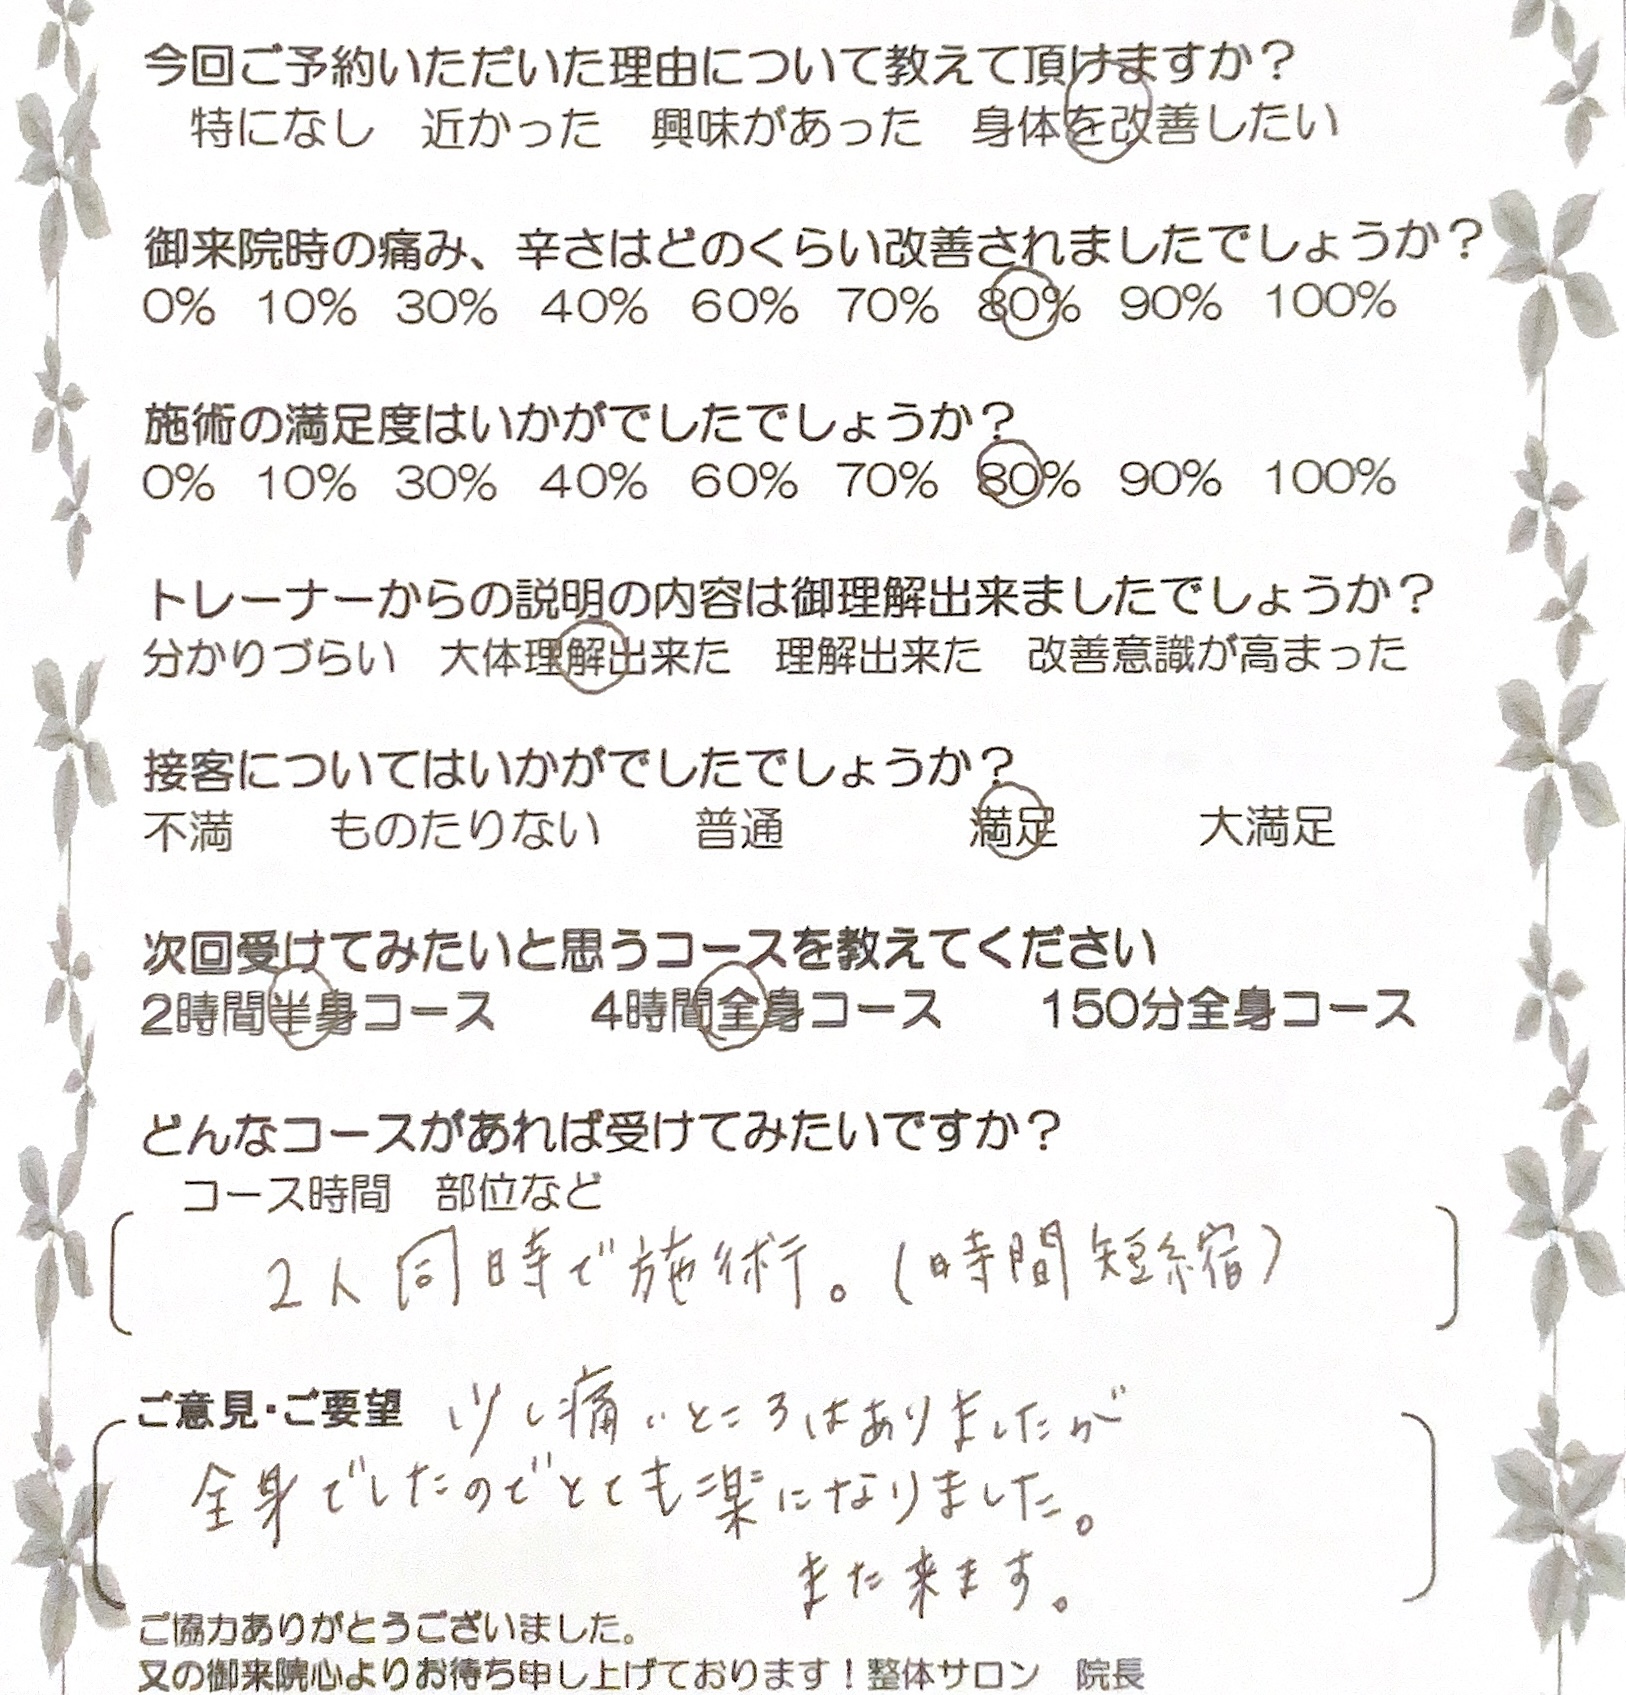 今回ご予約いただいた理由について教えて頂けますか?
特になし 近かった 興味があった 身体を改善したい
御来院時の痛み、辛さはどのくらい改善されましたでしょうか?
0% 10% 30% 40% 60% 70% 80% 90% 100%
施術の満足度はいかがでしたでしょうか?
0% 10% 30% 40% 60% 70% 80% 90% 100%
トレーナーからの説明の内容は御理解出来ましたでしょうか?
分かりづらい 大体理解出来た 理解出来た 改善意識が高まった
接客についてはいかがでしたでしょうか?
不満 ものたりない 普通 満足 大満足
次回受けてみたいと思うコースを教えてください
2時間半身コース 4時間全身コース 150分全身コース
どんなコースがあれば受けてみたいですか?
コース時間 部位など
2人同時で施術。(時間短縮)
ご意見・ご要望 少し痛いところはありましたが
全身でしたのでとても楽になりました。
また来ます。
ご協力ありがとうございました。
又の御来院心よりお待ち申し上げております!整体サロン 院長